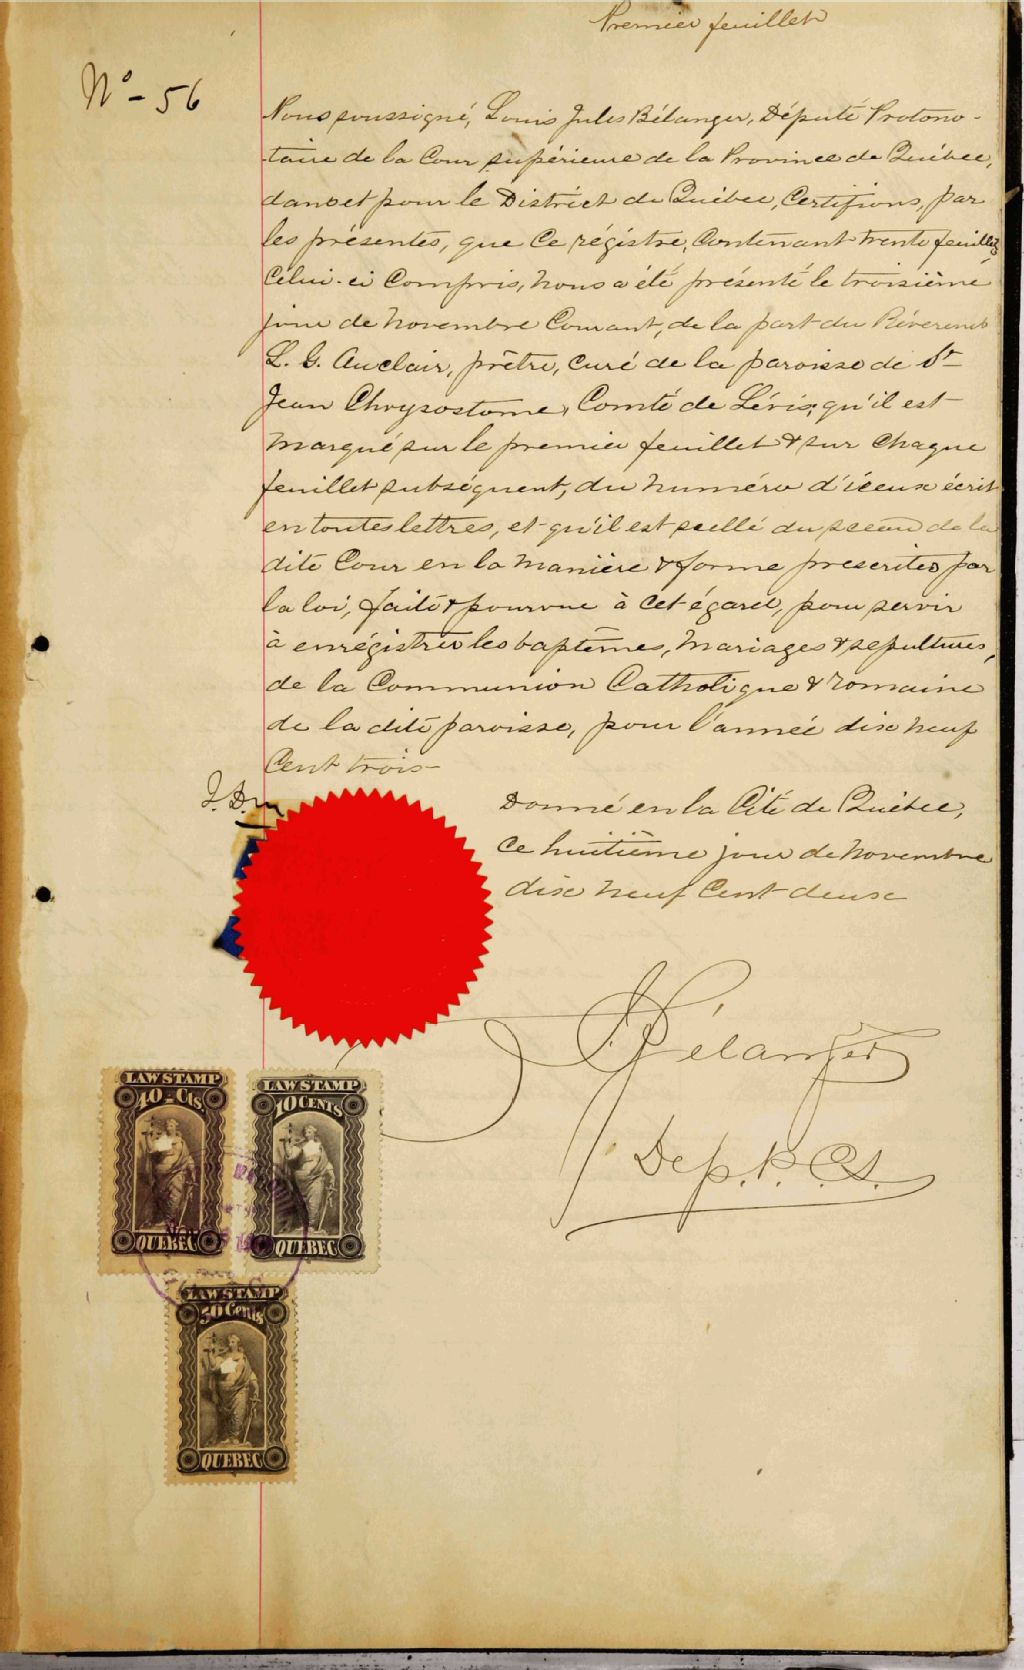 Premier feuillet
No - 56
Nous soussigné, Louis Jules Bélanger, Député Protono-
-taire de la Cour supérieure de la Province de Québec,
dans et pour le District de Québec, Certifions, par
les présentes, que ce régistre, contenant trente feuillets,
Celui-ci Compris, nous a été présenté le troisième
jour de novembre Courant, de la part du Révérend
L. G. Auclair, prêtre, curé de la paroisse de St
Jean Chrysostome, Comté de Lévis, qu'il est
marqué sur le premier feuillet & sur chaque
feuillet subséquent, du numéro d'iceux écrit
en toutes lettres, et qu'il est scellé du sceau de la
dite Cour en la manière & forme prescrites par
la loi, faite & pourvue à cet égard, pour servir
à enrégistrer les baptêmes, mariages & sépultures,
de la Communion Catholique & romaine
de la dite paroisse, pour l'année dix neuf
Cent trois
Donné en la Cité de Québec,
ce huitième jour de novembre
dix neuf Cent deux
Bélanger
Dep. P. C. S.
LAW STAMP
40 - Cts.
QUEBEC
LAW STAMP
10 CENTS
QUEBEC
LAW STAMP
50 Cents
QUEBEC